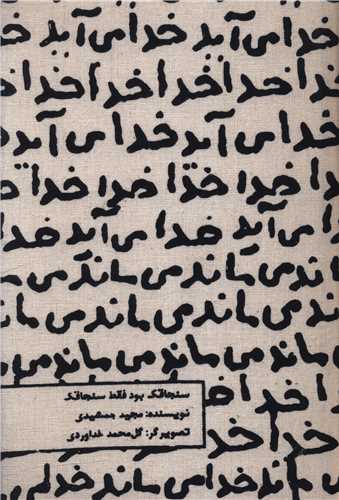 خدا می آید خدا می آید
خدا خدا خدا خدا خدا
می آید خدا می آید
خدا خدا خدا خدا خدا
می آید خدا می آید خدا
ماند می ماند می ماند می
ماند می ماند می ماند می
ماند می ماند می ماند می
خدا
سنجاقک بود فقط سنجاقک
نویسنده: مجید جمشیدی
تصویرگر: گل محمد خداوردی
خدا
ماند خدا می ماند خدا می